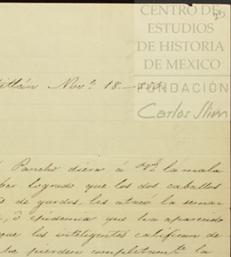 CENTRO DE
ESTUDIOS
DE HISTORIA
DE MEXICO
FUNDACIÓN
Carlos Slim
Novᵉ 18
Pancho diera á la mala
logrado que los dos caballos
de gordos, les ataco la seman
ó epidemia que ha aparecido
que los inteligentes califican de
pierden completamente la